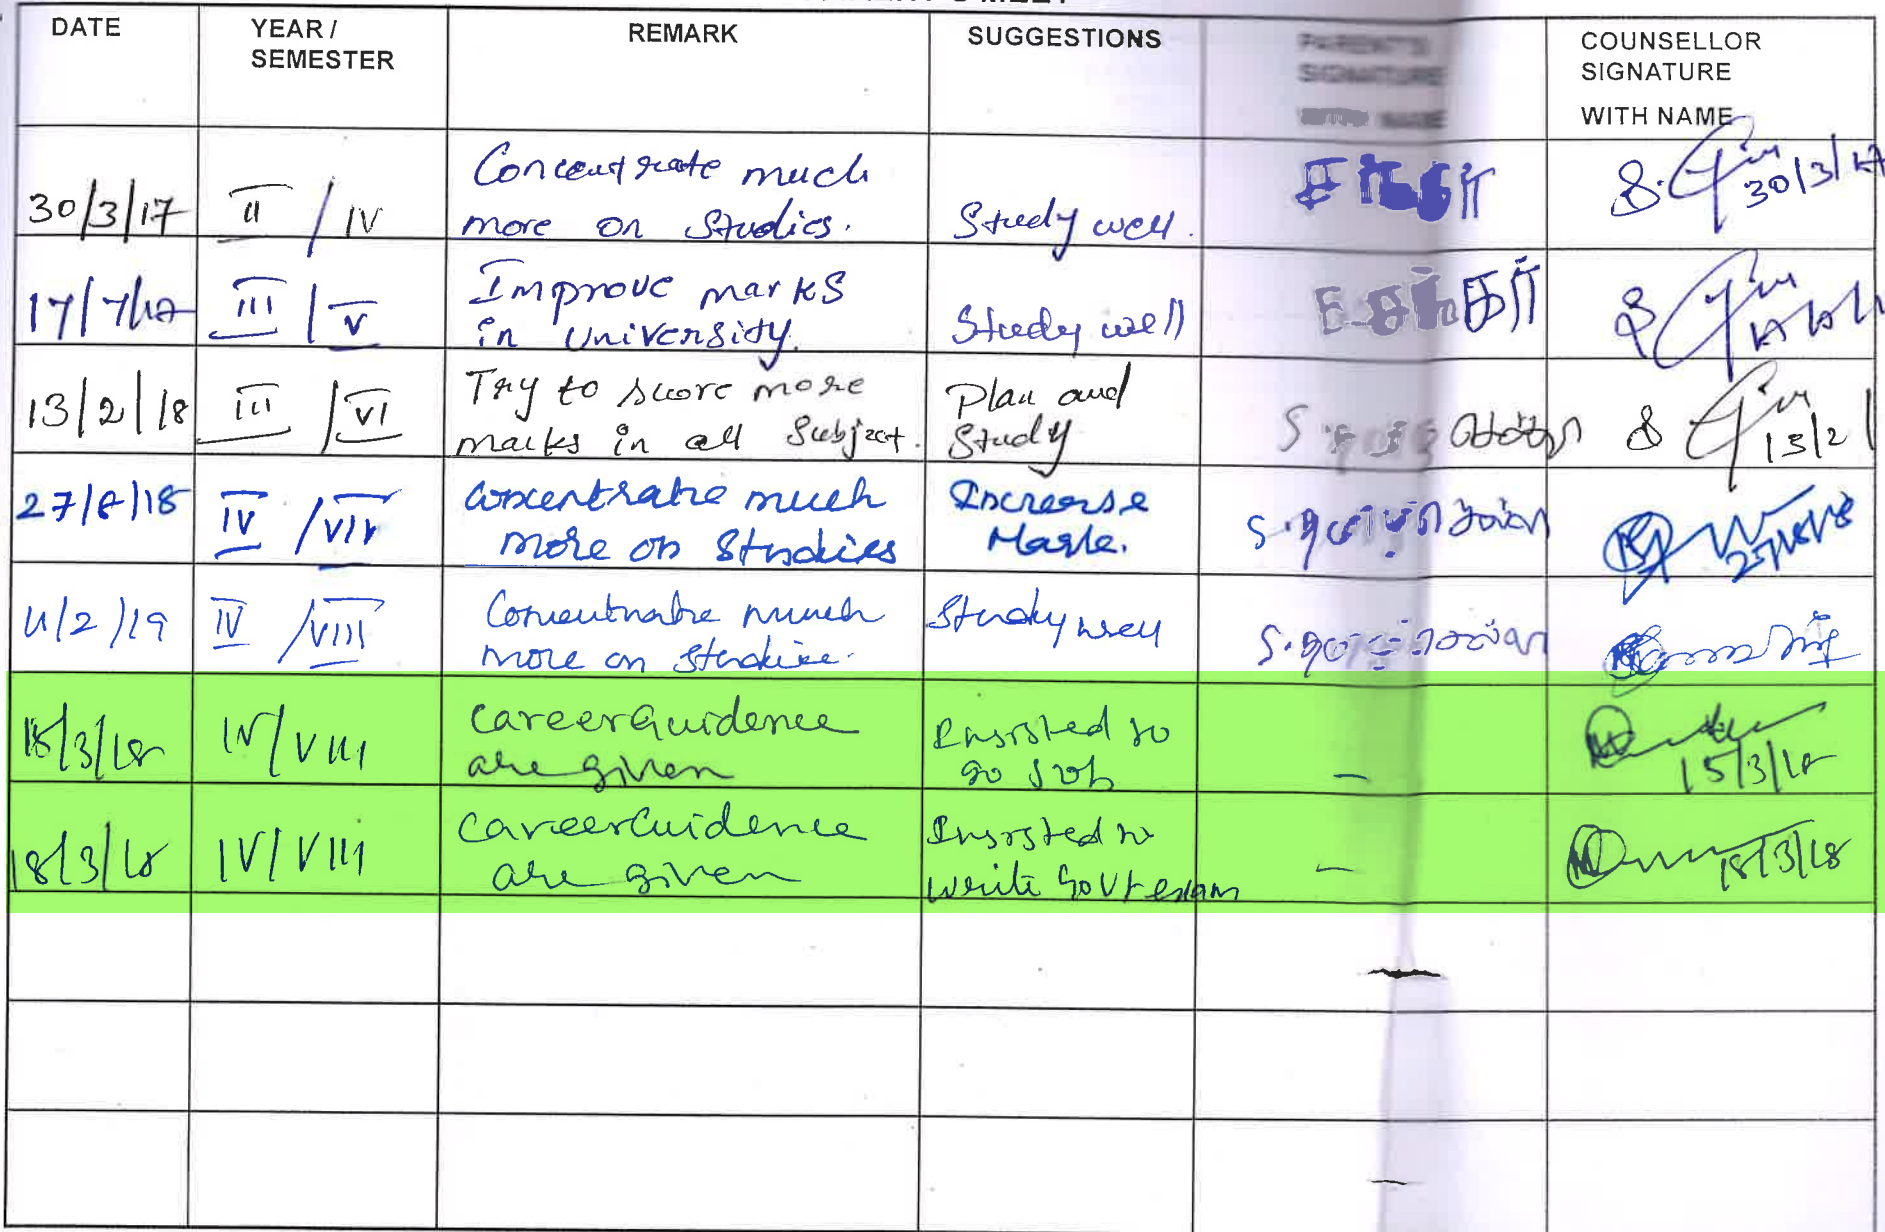 DATE
YEAR /
SEMESTER
REMARK
SUGGESTIONS
PARENT'S
SIGNATURE
NAME
COUNSELLOR
SIGNATURE
WITH NAME
30/3/17
II / IV
Concentrate much
more on Studies.
Study well.
30/3/17
17/7/17
III / V
Improve marks
in University.
Study well
13/2/18
III / VI
Try to score more
marks in all Subject.
Plan and
Study
13/2
27/8/18
IV / VII
Concentrate much
more on Studies
Increase
Mark.
11/2/19
IV / VIII
Concentrate much
more on Studies.
Study well
15/3/18
IV / VIII
Career Guidence
are given
Insisted to
go Job
-
15/3/18
18/3/18
IV / VIII
Career Guidence
are given
Insisted to
write Govt exam
-
18/3/18